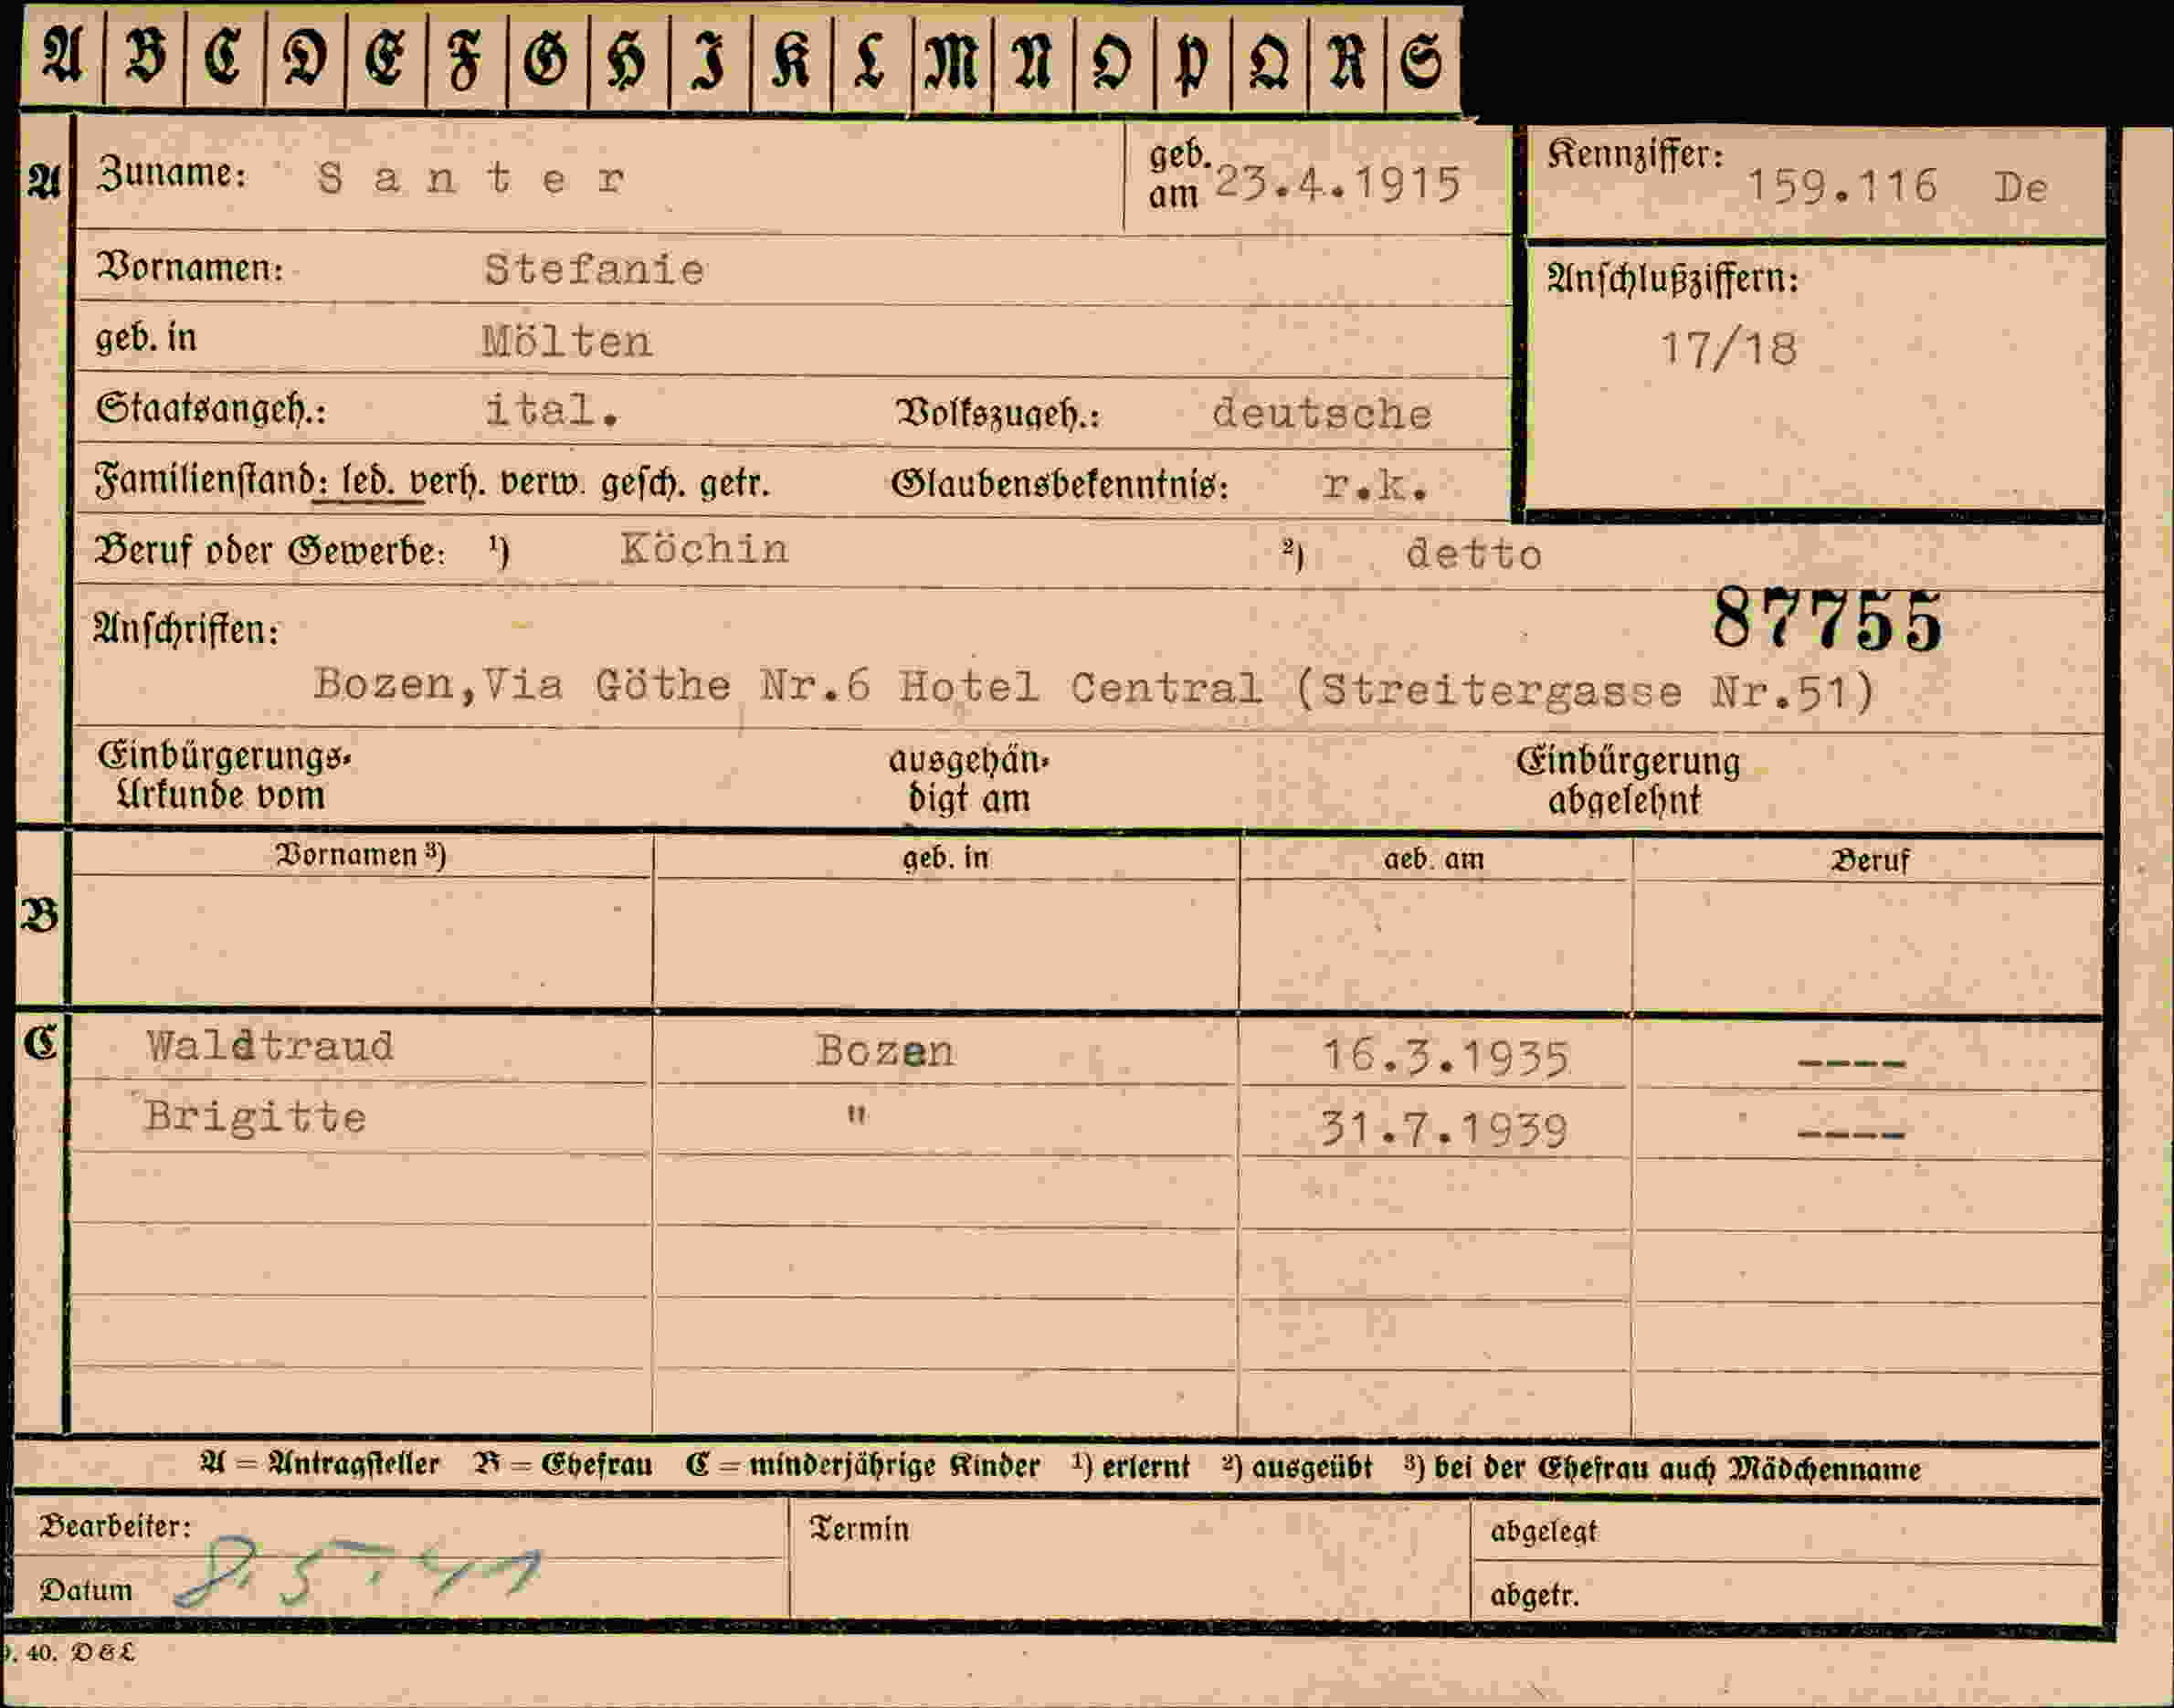 A B C D E F G H I K L M N O P Q R S
A Zuname: Santer geb. am 23.4.1915 Kennziffer: 159.116 De
Vornamen: Stefanie
Anschlußziffern:
geb. in Mölten
17/18
Staatsangeh.: ital. Volkszugeh.: deutsche
Familienstand: led. verh. verw. gesch. getr. Glaubensbekenntnis: r.k.
Beruf oder Gewerbe: ¹) Köchin ²) detto
Anschriften: 87755
Bozen,Via Göthe Nr.6 Hotel Central (Streitergasse Nr.51)
Einbürgerungs- ausgehän- Einbürgerung
Urkunde vom digt am abgelehnt
Vornamen ³) geb. in geb. am Beruf
B
C Waldtraud Bozen 16.3.1935 ----
Brigitte " 31.7.1939 ----
A = Antragsteller B = Ehefrau C = minderjährige Kinder ¹) erlernt ²) ausgeübt ³) bei der Ehefrau auch Mädchenname
Bearbeiter: Termin abgelegt
Datum 8.5.41 abgetr.
40. D&L